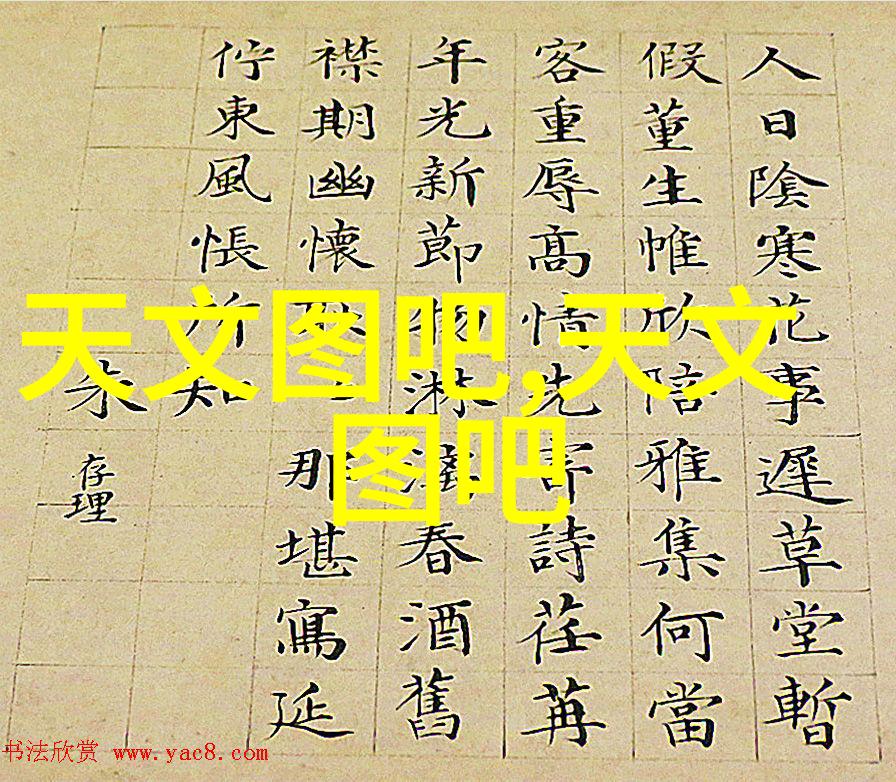 人日陰寒花事遲草堂暫
假董生帷欣陪雅集何當
客重辱髙情先寄詩荏苒
年光新節物淋漓春酒舊
襟期幽懷那堪寫延
佇東風悵所知
朱存理
天文图吧,天文
图吧
书法欣赏 www.yac8.com